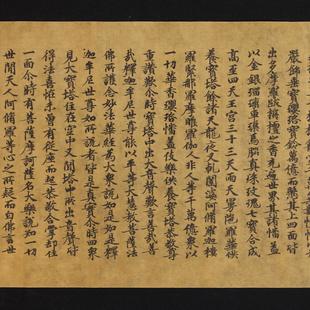 嚴飾垂寶瓔珞寶鈴萬億而懸其上四面皆
出多摩羅跋栴檀之香充遍世界其諸幡蓋
以金銀琉璃車𤦲馬瑙真珠玫瑰七寶合成
高至四天王宮三十三天雨天曼陀羅華供
養寶塔餘諸天龍夜叉乾闥婆阿脩羅迦樓
羅緊那羅摩睺羅伽人非人等千萬億衆以
一切華香瓔珞幡蓋伎樂供養寶塔恭敬尊
重讚歎尒時寶塔中出大音聲歎言善哉善
哉釋迦牟尼世尊能以平等大慧教菩薩法
佛所護念妙法華經為大衆說如是如是釋
迦牟尼世尊如所說者皆是真實尒時四衆
見大寶塔住在空中又聞塔中所出音聲皆
得法喜怪未曾有從座而起恭敬合掌却住
一面尒時有菩薩摩訶薩名大樂說知一切
世間天人阿脩羅等心之所疑而白佛言世